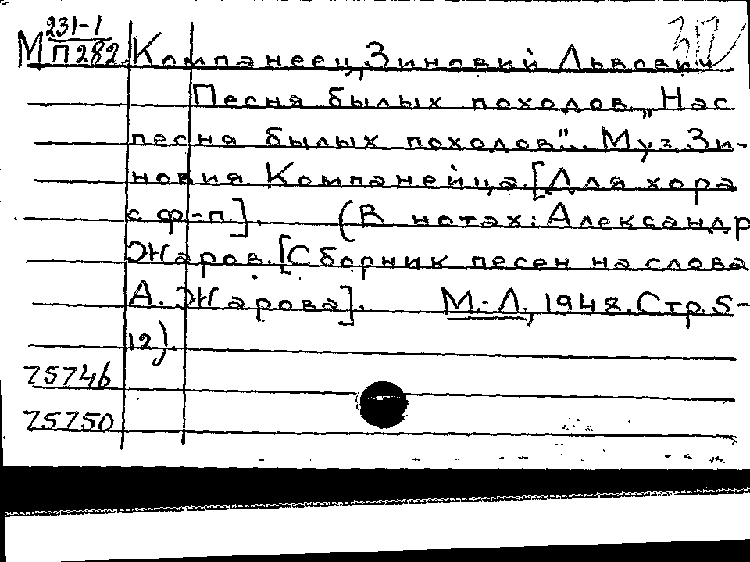 231-1
М П282 Компанеец, Зиновий Львович
Песня былых походов. „Нас
песня былых походов"... Муз. Зи-
новия Компанейца. [Для хора
с ф-п]. (В нотах: Александр
Жаров. [Сборник песен на слова
А. Жарова]. М.-Л., 1948. Стр. 5-
12).
75746
75750